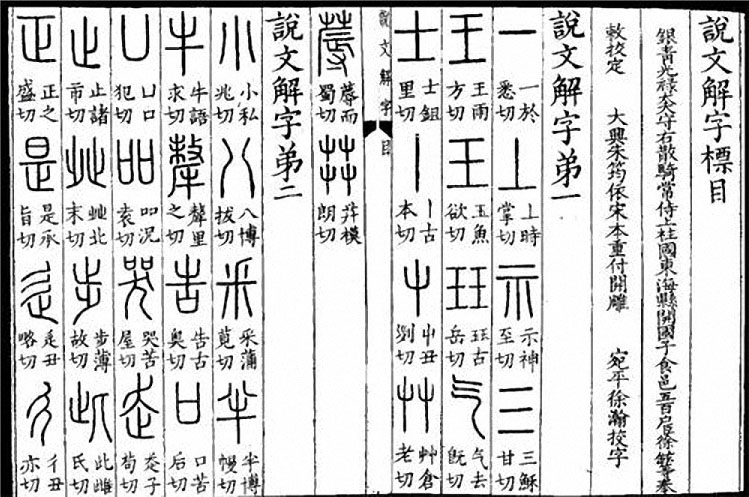 說文解字標目
銀青光祿大夫守右散騎常侍上柱國東海縣開國子食邑五百戶臣徐鉉等奉
敕挍定 大興朱筠依宋本重付開雕 宛平徐瀚挍字
說文解字弟一
一 一於悉切 丄 丄時掌切 示 示神至切 三 三穌甘切
王 王雨方切 玉 玉魚欲切 玨 玨古岳切 气 气去旣切
士 士鉏里切 丨 丨古本切 屮 屮丑列切 艸 艸倉老切
說文解字 目
蓐 蓐而蜀切 茻 茻模朗切
說文解字弟二
小 小私兆切 八 八博拔切 釆 釆蒲莧切 半 半博幔切
牛 牛語求切 犛 犛里之切 告 告古奧切 口 口苦后切
凵 凵口犯切 吅 吅況袁切 哭 哭苦屋切 走 走子苟切
止 止諸市切 癶 癶北末切 步 步薄故切 此 此雌氏切
正 正之盛切 是 是承旨切 辵 辵丑略切 彳 彳丑亦切